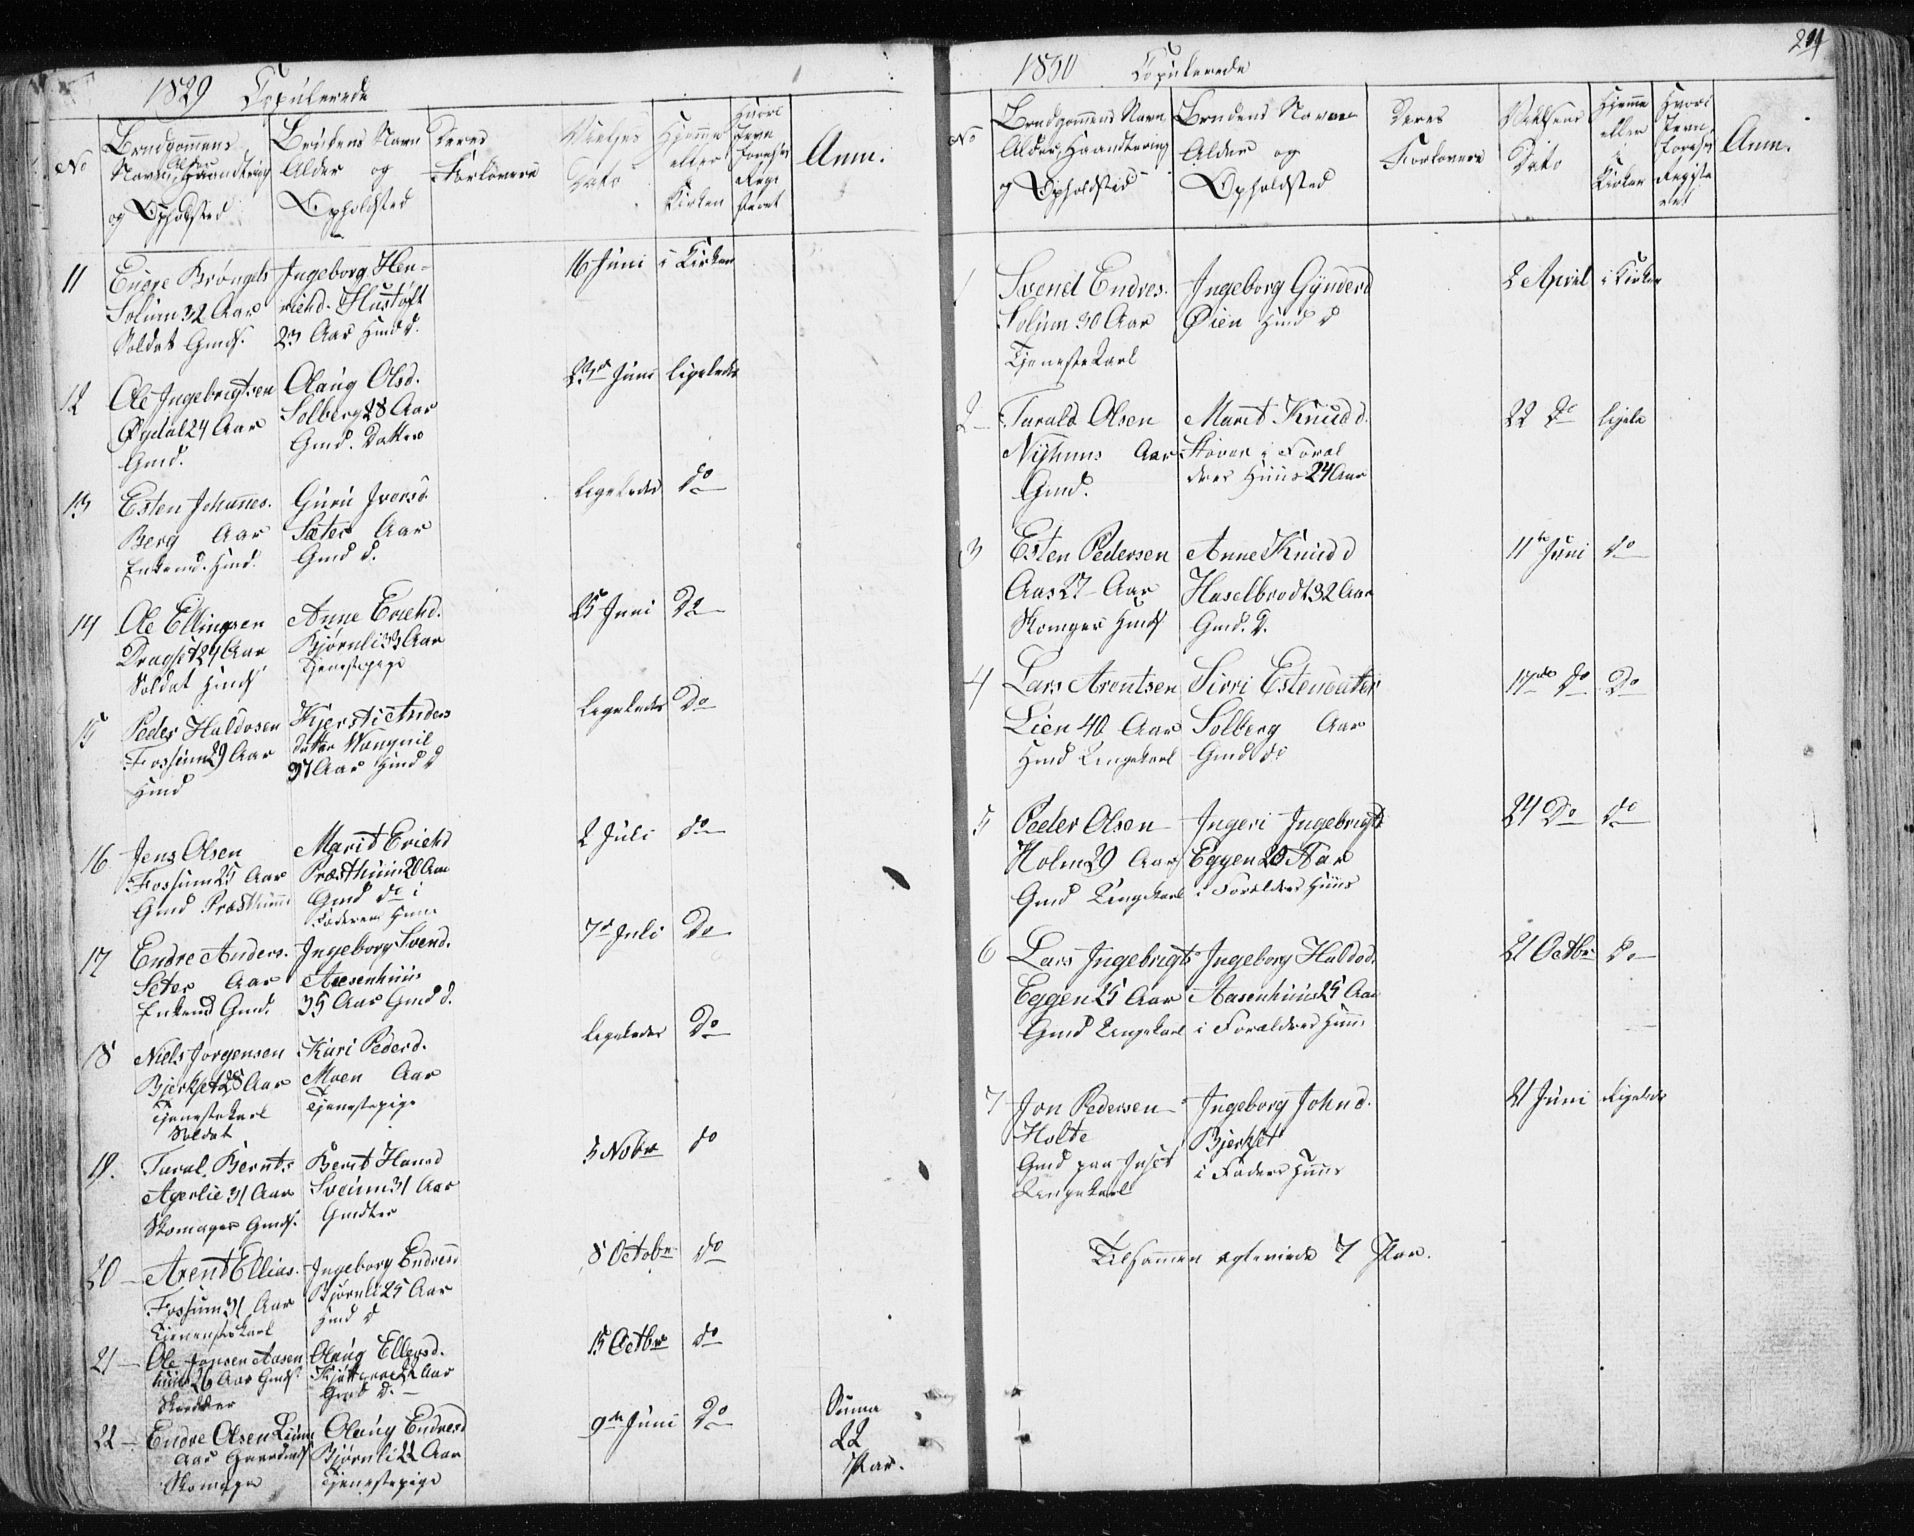 1829 Copulerede
No
Brudgommens
Navn Alder Haandtering
og Opholdsted
Brudens Navn
Alder og
Opholdsted
Deres
Forlovere
Vielses
Dato
Hjemme
eller
Kirken
Anm.
11
Solum 32 Aar
Soldat Gmds.
Ingeborg Hen-
richd. Hustøft
23 Aar Hmd d.
16 Juni
i Kirken
12
Ole Ingebrigtsen
Øydal 24 Aar
Gmd.
Olaug Olsd.
Solberg 28 Aar
Gmd. Datter
23d Juni
ligeledes
13
Esten Johannes.
Berg Aar
Enkemd. Hmd.
Guru Iversd.
Sæter Aar
Gmd d.
Ligeledes
do
14
Ole Ellingsen
Dragset 24 Aar
Soldat Hmds
Anne Erichd.
Bjørnli 33 Aar
Tjenestepige
25 Juni
Do
15
Peder Haldosen
Fossum 29 Aar
Hmd
Kjersti Anders
datter
37 Aar Hmd d
Ligeledes
Do
16
Jens Olsen
Fossum 25 Aar
Gmd Præsthuus
Marit Erichd
Præsthuus 26 Aar
Gmd do i
Faderens Huus
2 Juli
do
17
Endre Anders.
Seter Aar
Enkemd Gmd.
Ingeborg Svend.
Aasenhuus
35 Aar Gmd d.
7d Juli
Do
18
Niels Jørgensen
Bjerkset 28 Aar
Tjenestekarl
Soldat
Kari Pederd.
Moen Aar
Tjenestepige
Ligeledes
Do
19.
Taral. Bernts
Agerlie 31 Aar
Skomager Gmds.
Berit Hansd
31 Aar
Gmdter
5 Nobr
do
20
Arent Ellias.
Fossum 31 Aar
Tjenestekarl
Ingeborg Endresd
Bjørnli 25 Aar
Hmd d
8 Octobr
do
21
Ole Jonsen Aasen
huus 26 Aar Gmds.
Olaug Ellevsd.
22 Aar
Gmd D.
15 Octbr
do
22
Endre Olsen Lium
Aar
Skomager
Olaug Endresd
Bjørnli 22 Aar
Tjenestepige
9de Juni
Do
Suma
22
Par.
1830 Copulerede
No
Brudgommens Navn
Alder, Haandtering
og Opholdsted
Brudens Navn
Alder og
Opholdsted
Deres
Forlovere
Vielsens
Dato
Hjemme
eller
i
Kirken
Hvori
Jevn
førelses
Regista
ret
Anm.
1
Svend Endres.
Solum 30 Aar
Tjenestekarl
Ingeborg Gynderd
Øien Hmd d
2 April
i Kirken
2
Tarald Olsen
Nyhuus Aar
Gmd.
Marit Knudd.
Støver i Foræl
dres Huus 24 Aar
22 do
ligele
3
Esten Pedersen
Aas 27 Aar
Skomger Hmds
Anne Knudd
Haselbrodt 32 Aar
Gmd. D.
11te Juni
do
4
Lars Arentsen
Lien 40 Aar
Hmd Ungekarl
Sirri Estendatter
Solberg Aar
Gmd do
17de do
Do
5
Peder Olsen
Holm 29 Aar
Gmd Ungekarl
Ingeri Ingebrigtd
Eggen 28 Aar
i Forældres Huus
24 Do
do
6
Lars Ingebrigts
Eggen 25 Aar
Gmd Ungekarl
Ingeborg Haldod.
Aasenhuus 25 Aar
i Forældres Huus
21 Octbr
do
7
Jon Pedersen
Holte
Gmd paa Inset
Ungekarl
Ingeborg Johnd.
Bjerkset
i Faders Huus
21 Juni
Ligelede
Tilsammen egteviede 7 Par.